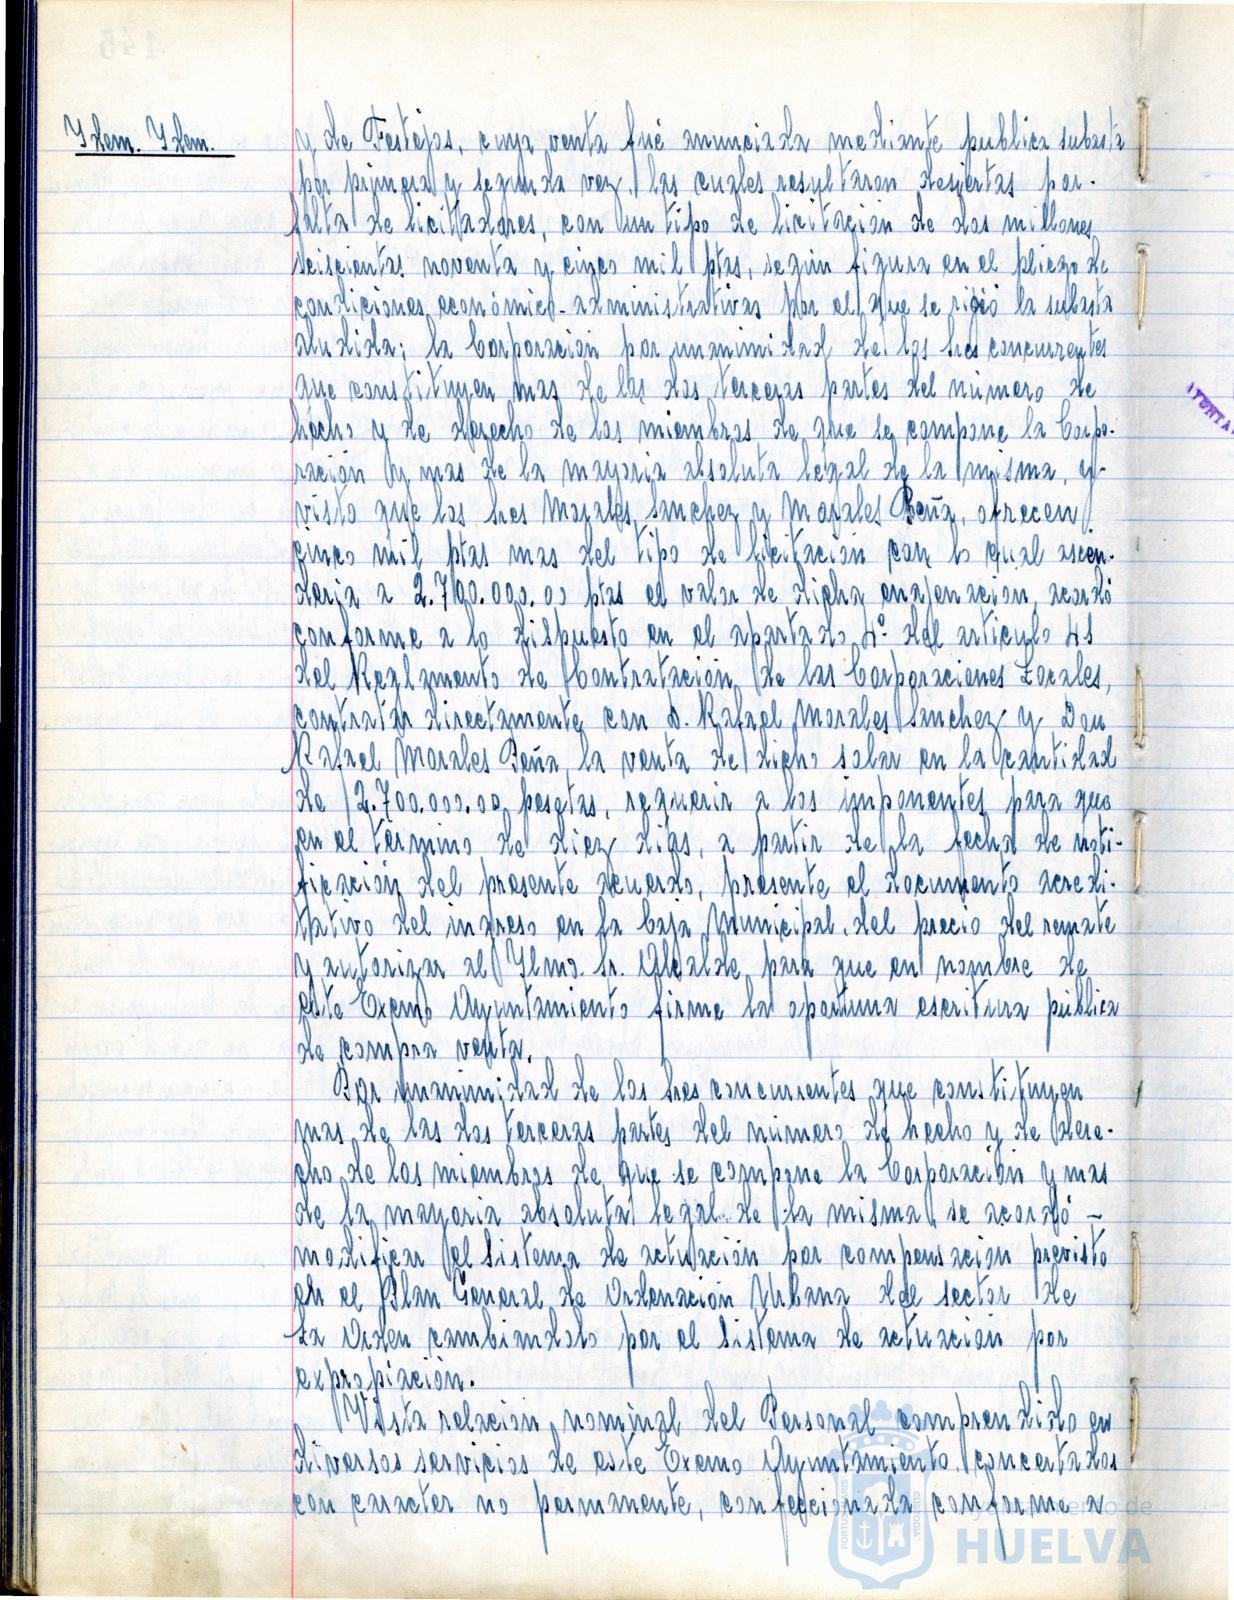 Ydem. Ydem.
y de Festejos, cuya venta fué anunciada mediante publica subasta
por primera y segunda vez, las cuales resultaron desiertas por-
falta de licitadores, con un tipo de licitación de dos millones
seiscientas noventa y cinco mil ptas, según figura en el pliego de
condiciones económico-administrativas por el que se rigió la subasta
aludida; la Corporación por unanimidad de los Sres concurrentes
que constituyen mas de las dos terceras partes del número de
hecho y de derecho de los miembros de que se compone la Corpo-
ración y mas de la mayoria absoluta legal de la misma, y-
visto que los Sres Morales Sanchez y Morales Peña, ofrecen
cinco mil ptas mas del tipo de licitación con lo qual ascen-
deria a 2.700.000.00 ptas el valor de dicha enajenacion, acordó
conforme a lo dispuesto en el apartado 4º del articulo 41
del Reglamento de Contratación de las Corporaciones Locales,
contratar directamente con D. Rafael Morales Sanchez y Don
Rafael Morales Peña, la venta de dicho solar en la cantidad
de 2.700.000.00 pesetas, requerir a los imponentes para que
en el término de diez dias, a partir de la fecha de noti-
ficación del presente acuerdo, presente el documento acredi-
tativo del ingreso en la Caja Municipal, del precio del remate
y autorizar al Ylmo. Sr. Alcalde para que en nombre de
este Excmo Ayuntamiento firme la oportuna escritura pública
de compra venta.
Por unanimidad de los Sres concurrentes que constituyen
mas de las dos terceras partes del número de hecho y de dere-
cho de los miembros de que se compone la Corporación y mas
de la mayoria absoluta legal de la misma, se acordó -
modificar el sistema de actuación por compensacion previsto
en el Plan General de Ordenación Urbana del sector de
La Orden cambiandolo por el sistema de actuacion por
expropiación.
Vista relacion nominal del Personal comprendido en
diversos servicios de este Excmo Ayuntamiento, concertados
con caracter no permanente, confeccionada conforme a
Ayuntamiento de
HUELVA
PORTUS MARIS